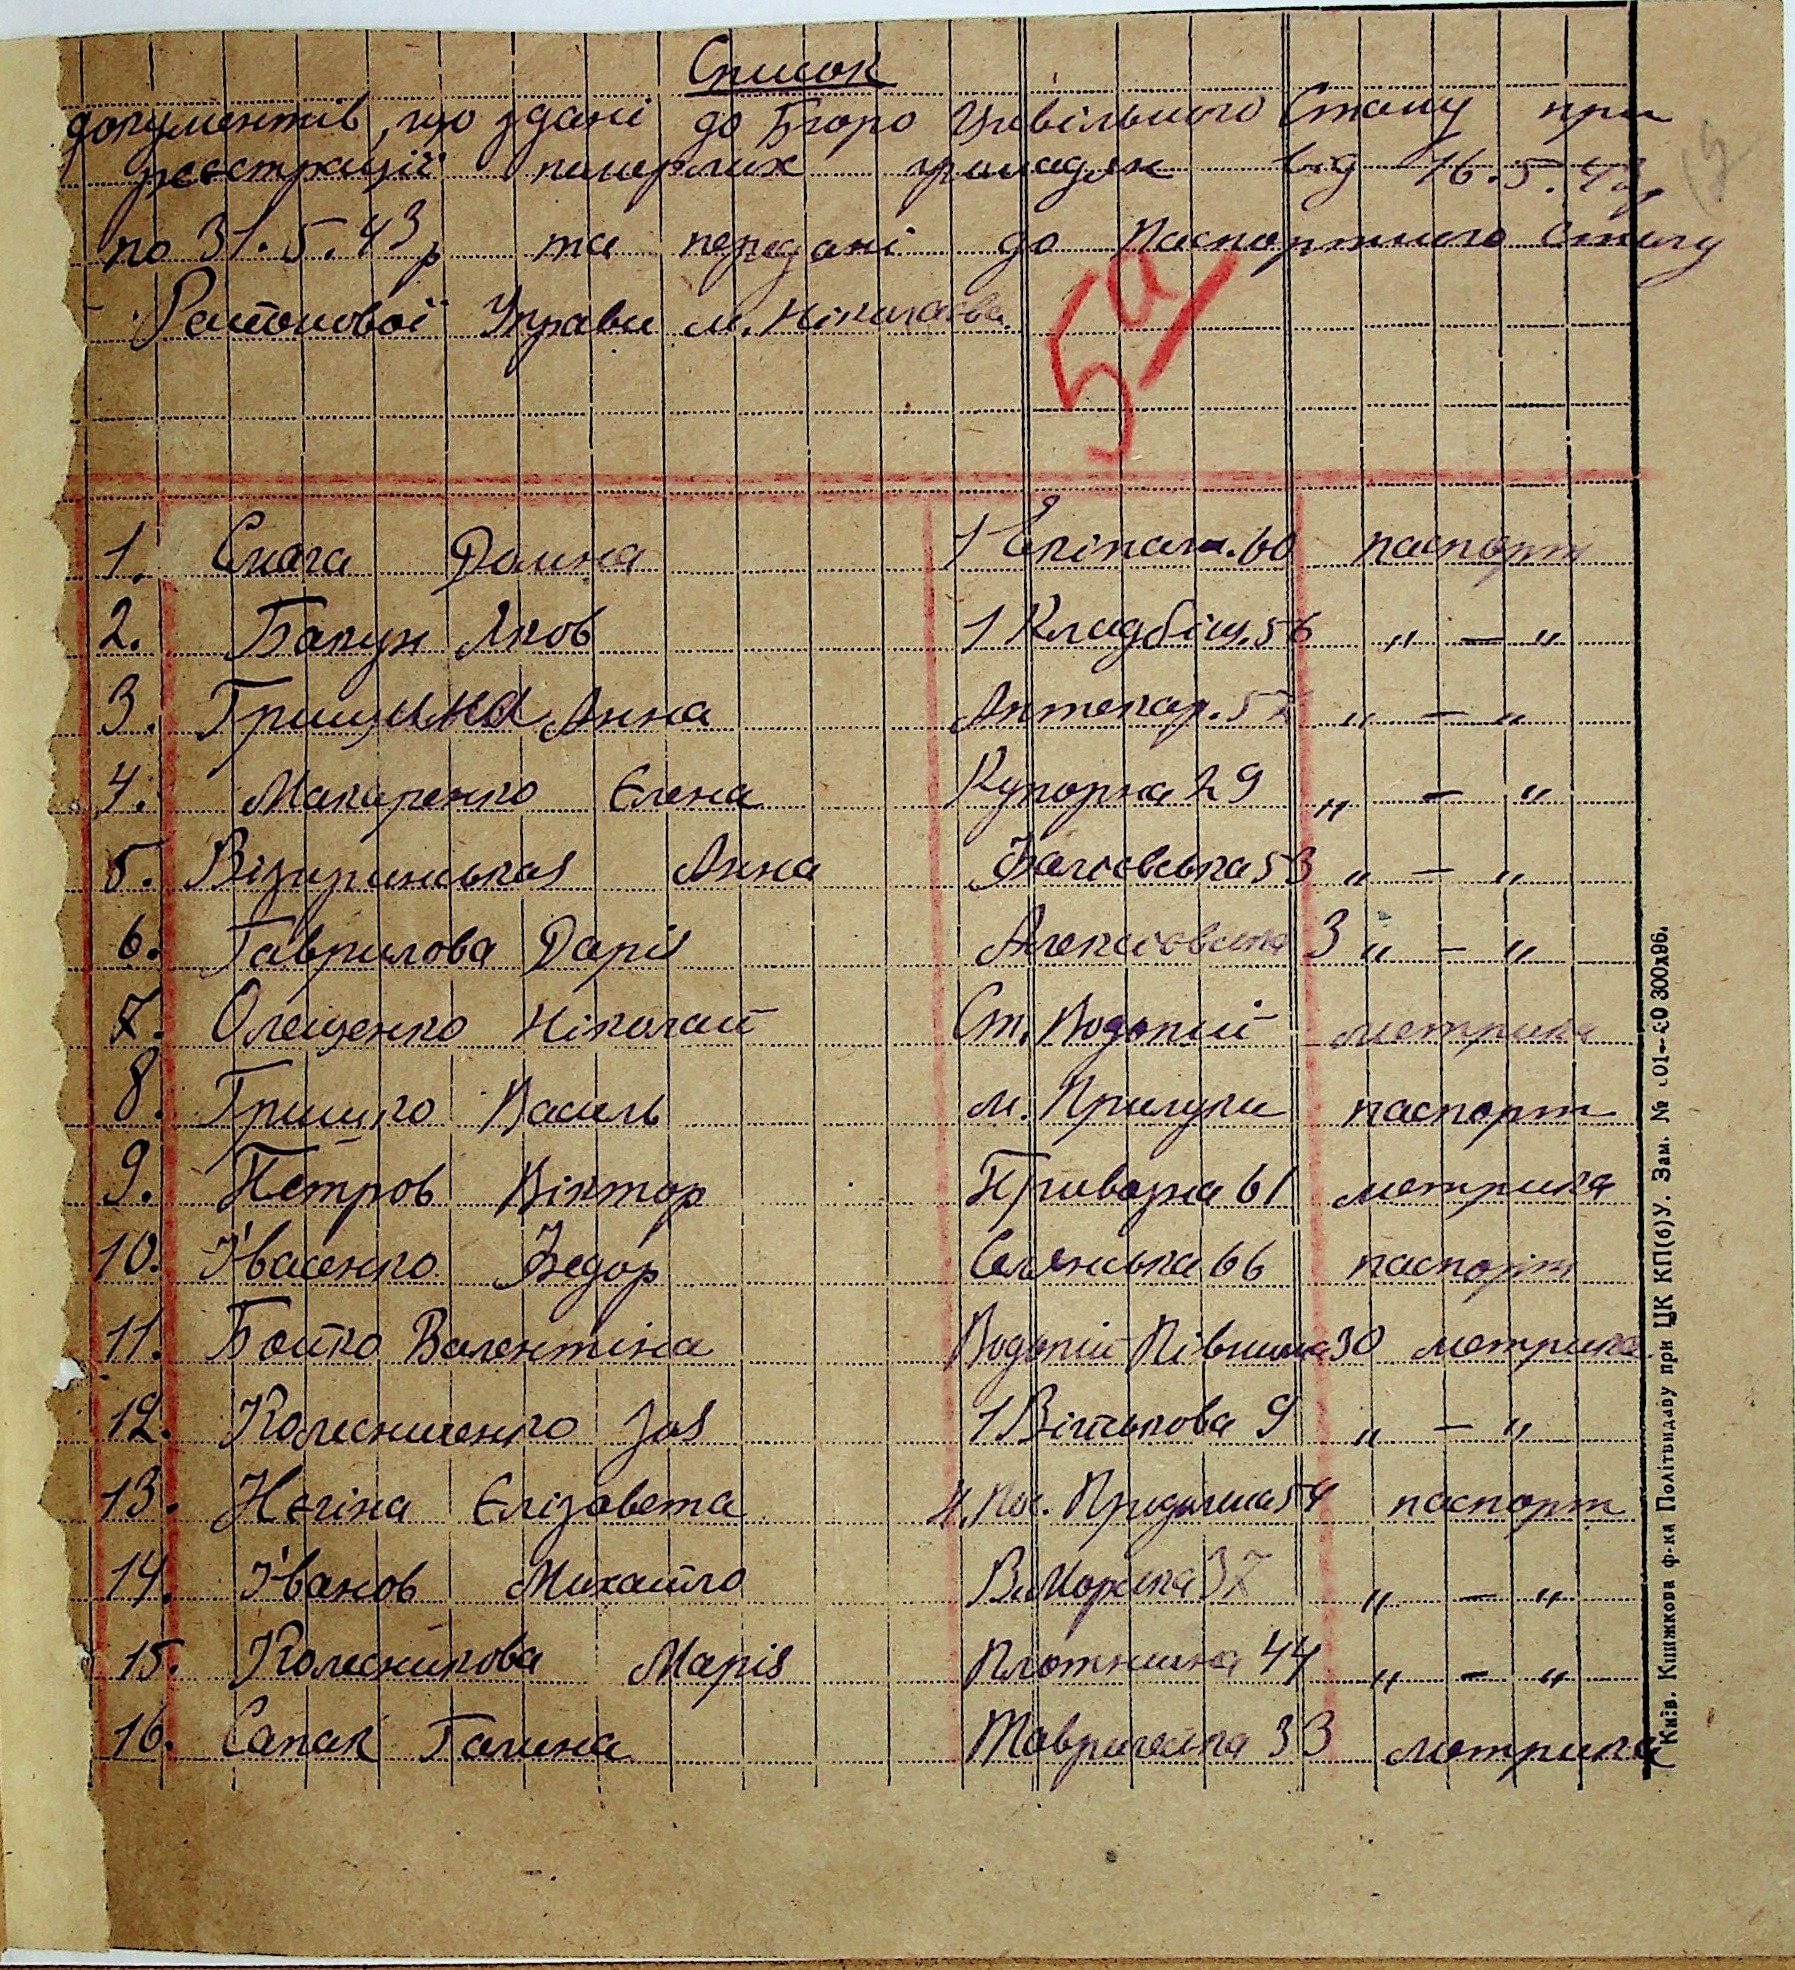 Список
документів, що здані до Бюро Цивільного Стану при
реєстрації померлих громадян від 16.5.43р.
по 31.5.43р та передані до Паспортного столу
Районової Управи м. Ніколаєва.
50
1. Смага Домна 1 Екіпаж. 60 паспорт
2. Бакун Яков 1 Кладбіщ. 56 " — "
3. Грицина Анна Аптекар. 57 " — "
4. Макаренко Єлена Купорна 29 " — "
5. Візиринська Анна Фалєєвська 53 " — "
6. Гаврилова Дарія Алексієвська 3 " — "
7. Олещенко Ніколай Ст. Водопій метрика
8. Гришко Василь м. Прилуки паспорт
9. Петров Віктор Привозна 61 метрика
10. Івасенко Федор Селянська 66 паспорт
11. Бойко Валентіна Водопій Північна 30 метрика
12. Колесниченко Зоя 1 Військова 9 " — "
13. Нєгіна Єлізавета Продольна 54 паспорт
14. Іванов Михайло В. Морська 37 " — "
15. Колесникова Марія Плотнична 44 " — "
16. Сапак Галина Таврическа 33 метрика
(Київ. Книжкова ф-ка Політвидаву при ЦК КП(б)У. Зам. № 300х96.